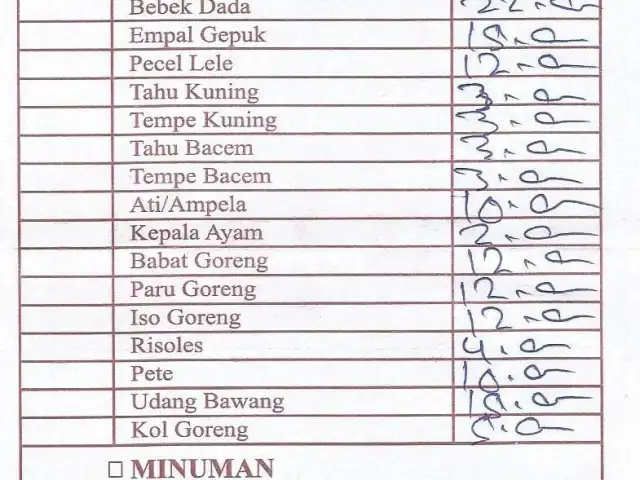 Bebek Dada
Empal Gepuk 15.0
Pecel Lele 12.0
Tahu Kuning 3.0
Tempe Kuning 3.0
Tahu Bacem 3.0
Tempe Bacem 3.0
Ati/Ampela 10.0
Kepala Ayam 2.0
Babat Goreng 12.0
Paru Goreng 12.0
Iso Goreng 12.0
Risoles 4.0
Pete 10.0
Udang Bawang 15.0
Kol Goreng 5.0
□ MINUMAN